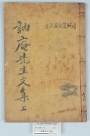 訥庵先生文集 上